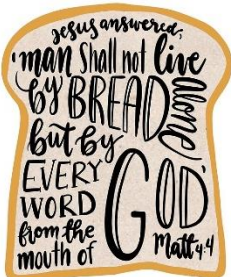 Jesus answered,
'man Shall not live
by BREAD alone,
but by
EVERY
WORD
from the
mouth of
GOD'
Matt 4:4